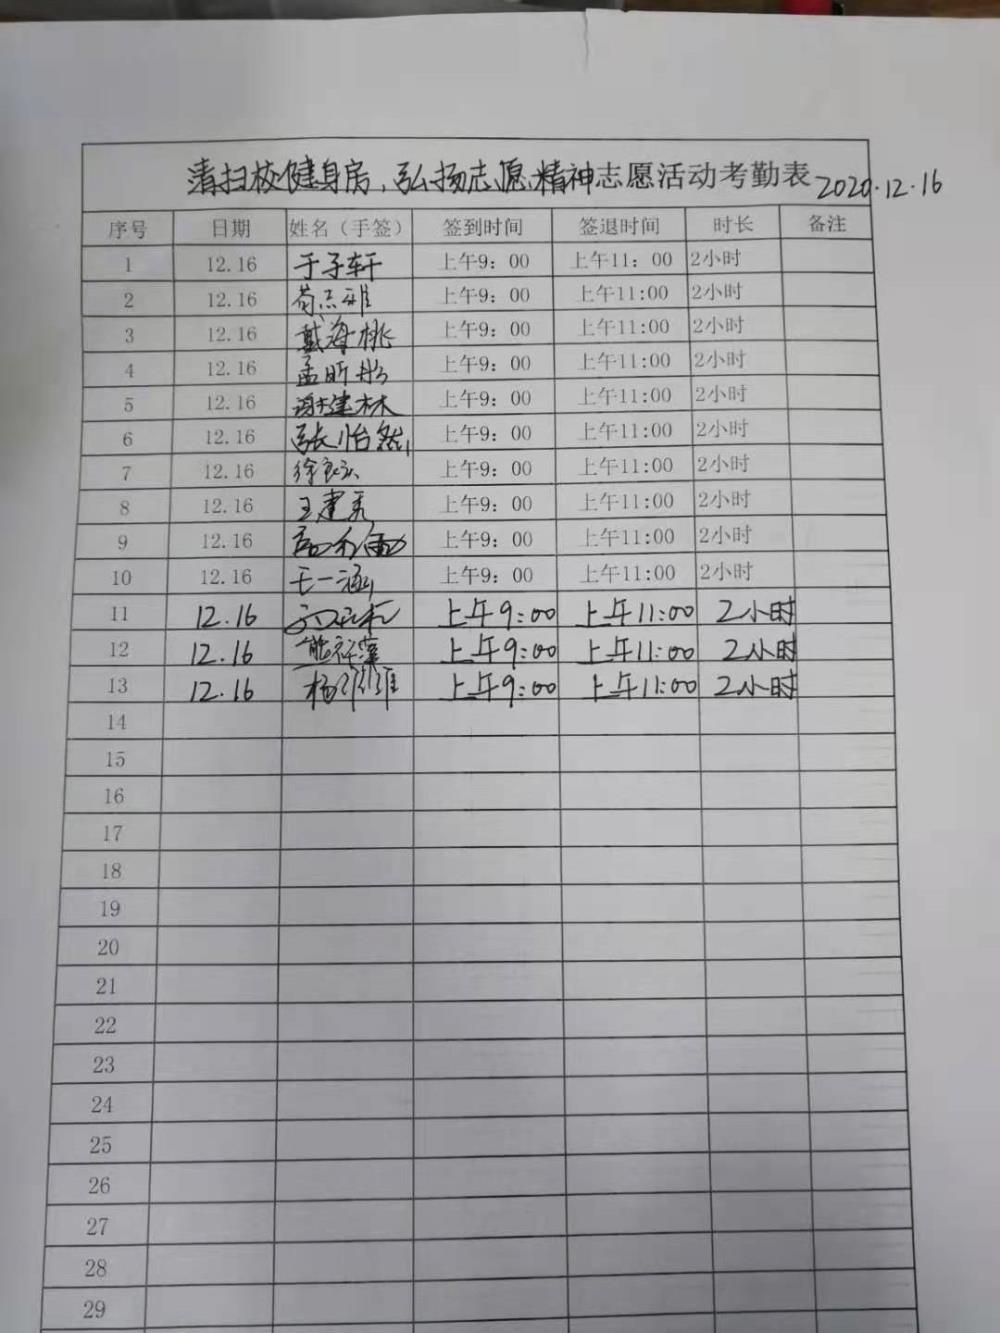 清扫校健身房、弘扬志愿精神志愿活动考勤表 2020.12.16
序号 日期 姓名（手签） 签到时间 签退时间 时长 备注
1 12.16 于子轩 上午9：00 上午11：00 2小时
2 12.16 上午9：00 上午11:00 2小时
3 12.16 戴海桃 上午9：00 上午11:00 2小时
4 12.16 孟昕彤 上午9：00 上午11:00 2小时
5 12.16 谢建林 上午9：00 上午11:00 2小时
6 12.16 张怡然 上午9：00 上午11:00 2小时
7 12.16 上午9：00 上午11:00 2小时
8 12.16 上午9：00 上午11:00 2小时
9 12.16 上午9：00 上午11:00 2小时
10 12.16 王一涵 上午9：00 上午11:00 2小时
11 12.16 上午9:00 上午11:00 2小时
12 12.16 上午9:00 上午11:00 2小时
13 12.16 上午9:00 上午11:00 2小时
14
15
16
17
18
19
20
21
22
23
24
25
26
27
28
29